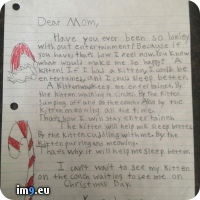 Dear Mom,
Have you ever been so lonley
with out entertainment? Because if
you have, that's how I feel now. You know
what would make me so happy? A
Kitten! If I had a Kitten, it would be
entertaining, and I could sleep better.
A Kitten would keep me entertained. By
the Kitten
jumping off and on the couch. Also by the
Kitten
That's how I will stay entertained.
The Kitten will help me sleep better.
By the Kitten cuddling with me. By the
Kitten purring and meowing.
That's why it will help me sleep better.
I can't wait to see my Kitten
on the couch waiting to see me on
Christmas Day.
im9.eu